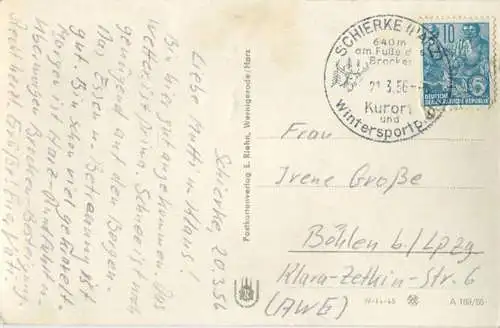 Schierke, 20.3.56
Liebe Mutti u. Klaus!
Bin hier gut angekommen. Das
Wetter ist prima. Schnee ist noch
genügend auf den Bergen.
Das Essen u. Betreuung ist
gut. Bin schon viel gewandert.
Morgen ist Harz-Rundfahrt
Herzliche Grüße
SCHIERKE (HARZ)
640 m
am Fuße d.
Brocken
21.3.56
Kurort
und
Wintersportp
10
5
DEUTSCHE
DEMOKRATISCHE REPUBLIK
Frau
Irene Große
Böhlen b/Lpzg
Klara-Zetkin-Str. 6
(AWG)
Postkartenverlag E. Riehn, Wernigerode/Harz
A 169/55